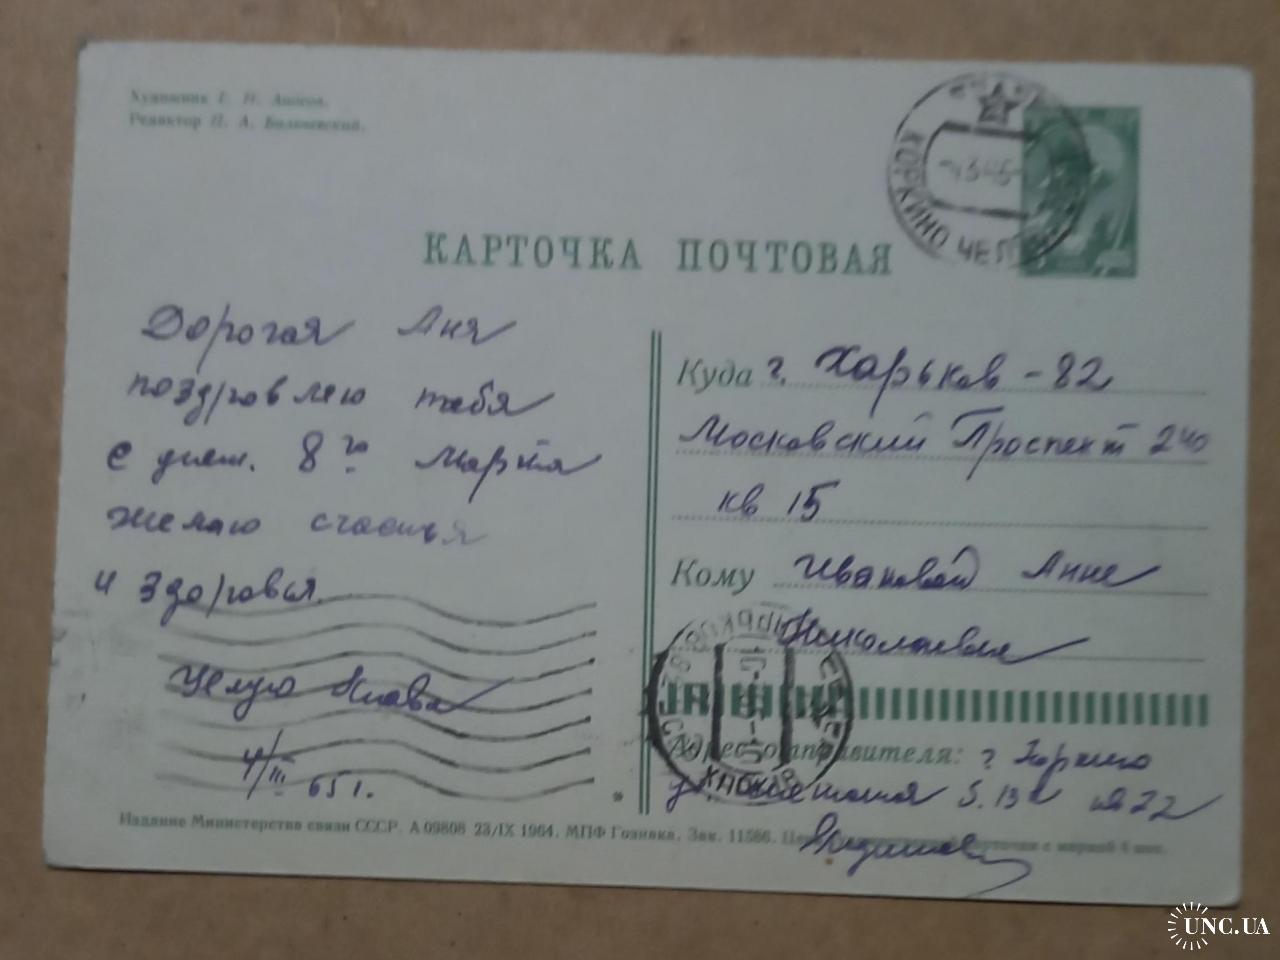 Художник Г. Н.
Редактор П. А.
КАРТОЧКА ПОЧТОВАЯ
КОРКИНО ЧЕЛ
Дорогая Аня
поздровляю тебя
с днем. 8го Марта
желаю счастья
и здоровья.
Целую
4/III 65 г.
Куда г. Харьков - 82
Московский Проспект 240
кв 15
Кому Ивановой Анне
Николаевне
Адрес отправителя: г Коркино
Издание Министерства связи СССР. А 09808 23/IX 1964. МПФ Гознака. Зак. 11586.
UNC.UA